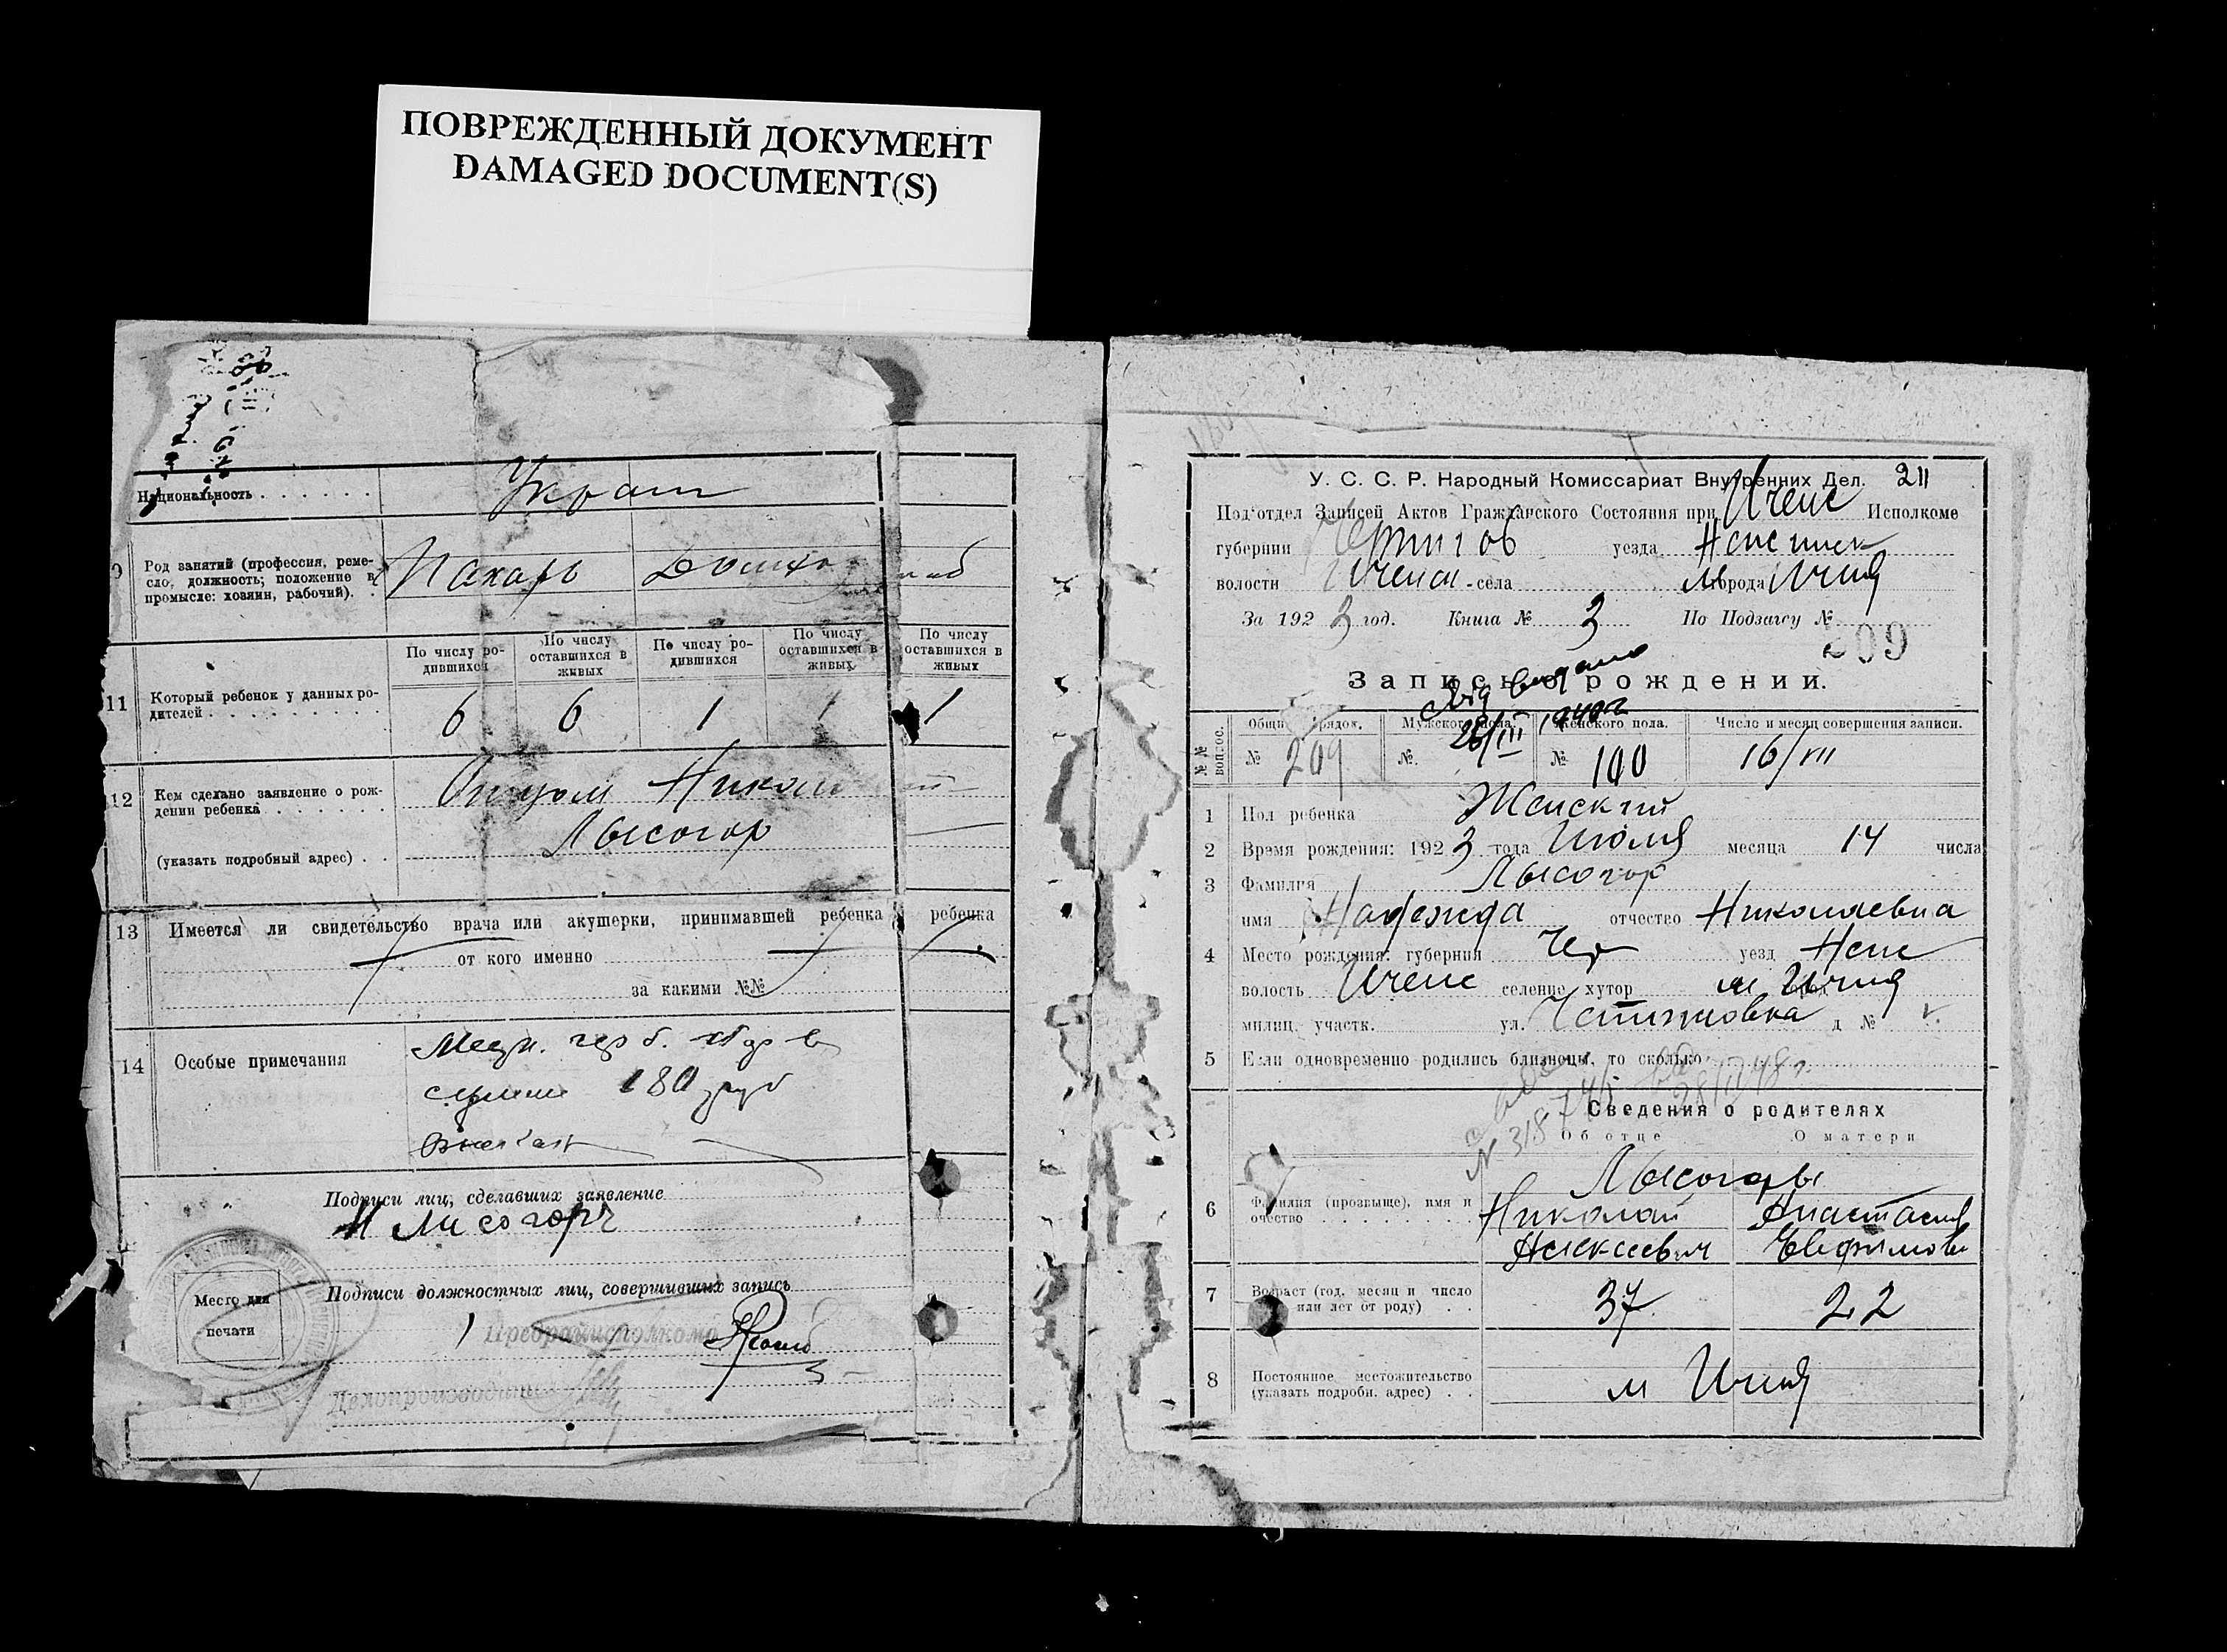 ПОВРЕЖДЕННЫЙ ДОКУМЕНТ
DAMAGED DOCUMENT(S)
Национальность
Украин
9 Род занятий (профессия, реме-
сло, должность; положение в
промысле: хозяин, рабочий).
Пахарь
По числу ро-
дившихся
По числу
оставшихся в
живых
По числу ро-
дившихся
По числу
оставшихся в
живых
По числу
оставшихся в
живых
11 Который ребенок у данных ро-
дителей
6 6 1 1 1
12 Кем сделано заявление о рож-
дении ребенка
(указать подробный адрес)
Отцом Никол
Лысогор
13 Имеется ли свидетельство врача или акушерки, принимавшей ребенка ребенка
от кого именно
за какими №№
14 Особые примечания
180 руб
Подписи лиц, сделавших заявление
Н Лисогорь
Место для
печати
Подписи должностных лиц, совершивших запись
Предрайисполкома
Делопроизводитель
У. С. С. Р. Народный Комиссариат Внутренних Дел. 211
Под'отдел Записей Актов Гражданского Состояния при Иченс Исполкоме
губернии Чернигов уезда
волости села м города Ичня
За 1923 год. Книга № 3 По Подзагсу № 209
Запись о рождении.
выдано
26/III 1940г
№№ вопрос.
Общи порядок. Мужского пола. Женского пола. Число и месяц совершения записи.
№ 209 № № 100 16/VII
1 Пол ребенка Женский
2 Время рождения: 1923 года Июля месяца 14 числа
3 Фамилия Лысогор
имя Надежда отчество Николаевна
4 Место рождения: губерния Чер уезд
волость Иченс селение хутор м город Ичня
милиц. участк. ул. д №
5 Если одновременно родились близнецы, то сколько
28/II 48 г.
Сведения о родителях
Об отце О матери
6 Фамилия (прозвыще), имя и
очество
Лысогоры
Николай Анастасия
Алексеевич Евфимовн
7 Возраст (год, месяц и число
или лет от роду)
37 22
8 Постоянное местожительство
(указать подробн. адрес)
м Ичня